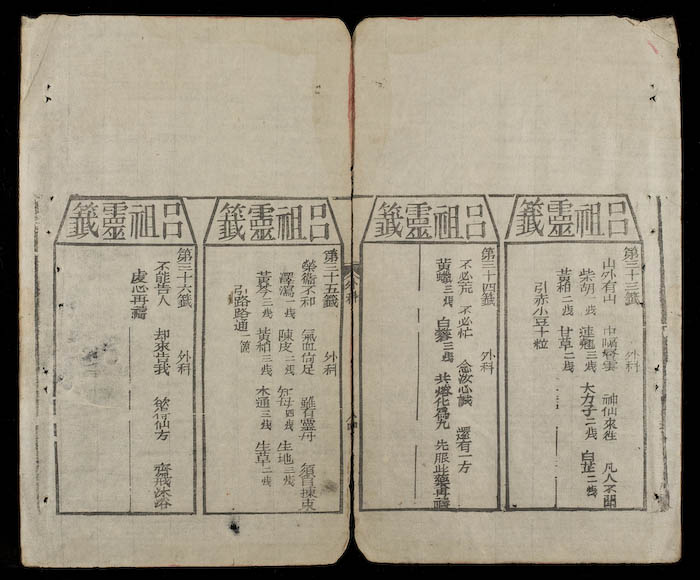 呂祖靈籤
第三十三籤　外科
山外有山　中隔　雲　神仙來往　凡人不聞
柴胡一戔　連翹三戔　大力子二戔　白芷二戔
黃柏二戔　甘草二戔
引赤小豆十粒
呂祖靈籤
第三十四籤　外科
不必慌　不必忙　念汝心誠　還有一方
黃蠟三戔　白礬三戔　共熔化爲丸　先服此藥再禱
外科
呂祖靈籤
第三十五籤　外科
榮衞不和　氣血　足　雖有靈丹　須　束
澤瀉一戔　陳皮二戔　知母四戔　生地三戔
黃芩三戔　黃柏三戔　木通三戔　生草二戔
引路路通一個
呂祖靈籤
第三十六籤　外科
不能告人　却來告我　欲得仙方　齋戒沐浴
虔心再禱